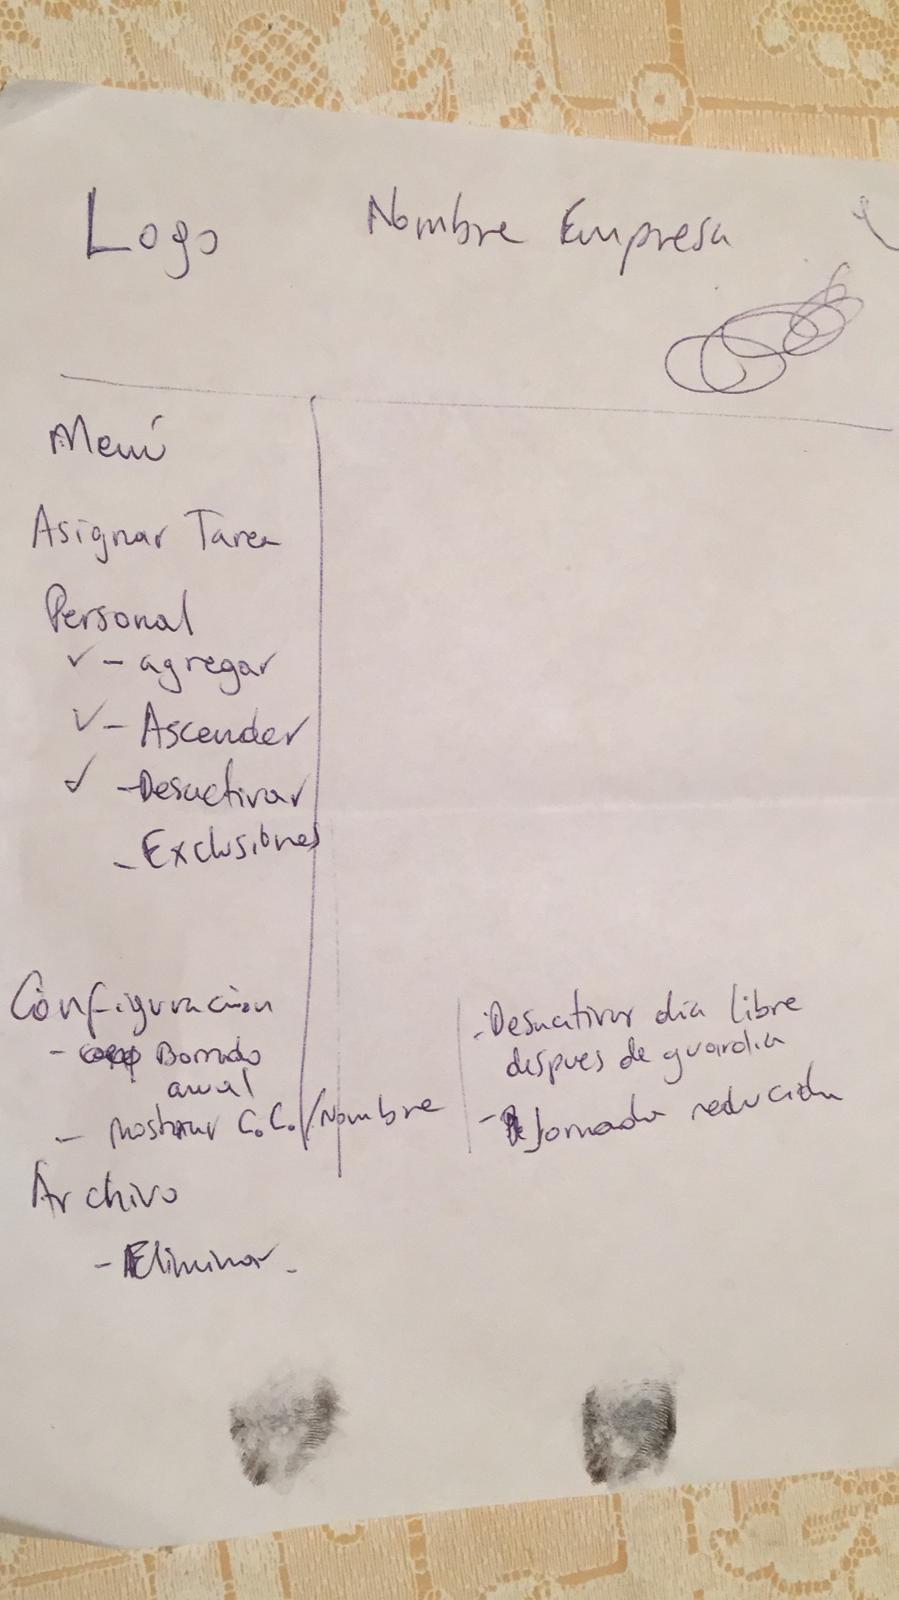 Logo Nombre Empresa
Menú
Asignar Tarea
Personal
✓ - agregar
✓ - Ascender
✓ - Desactivar
- Exclusiones
Configuración
- Borrado
anual
- Mostrar C.C./Nombre
- Desactivar dia libre
despues de guardia
- Jornada reducida
Archivo
- Eliminar